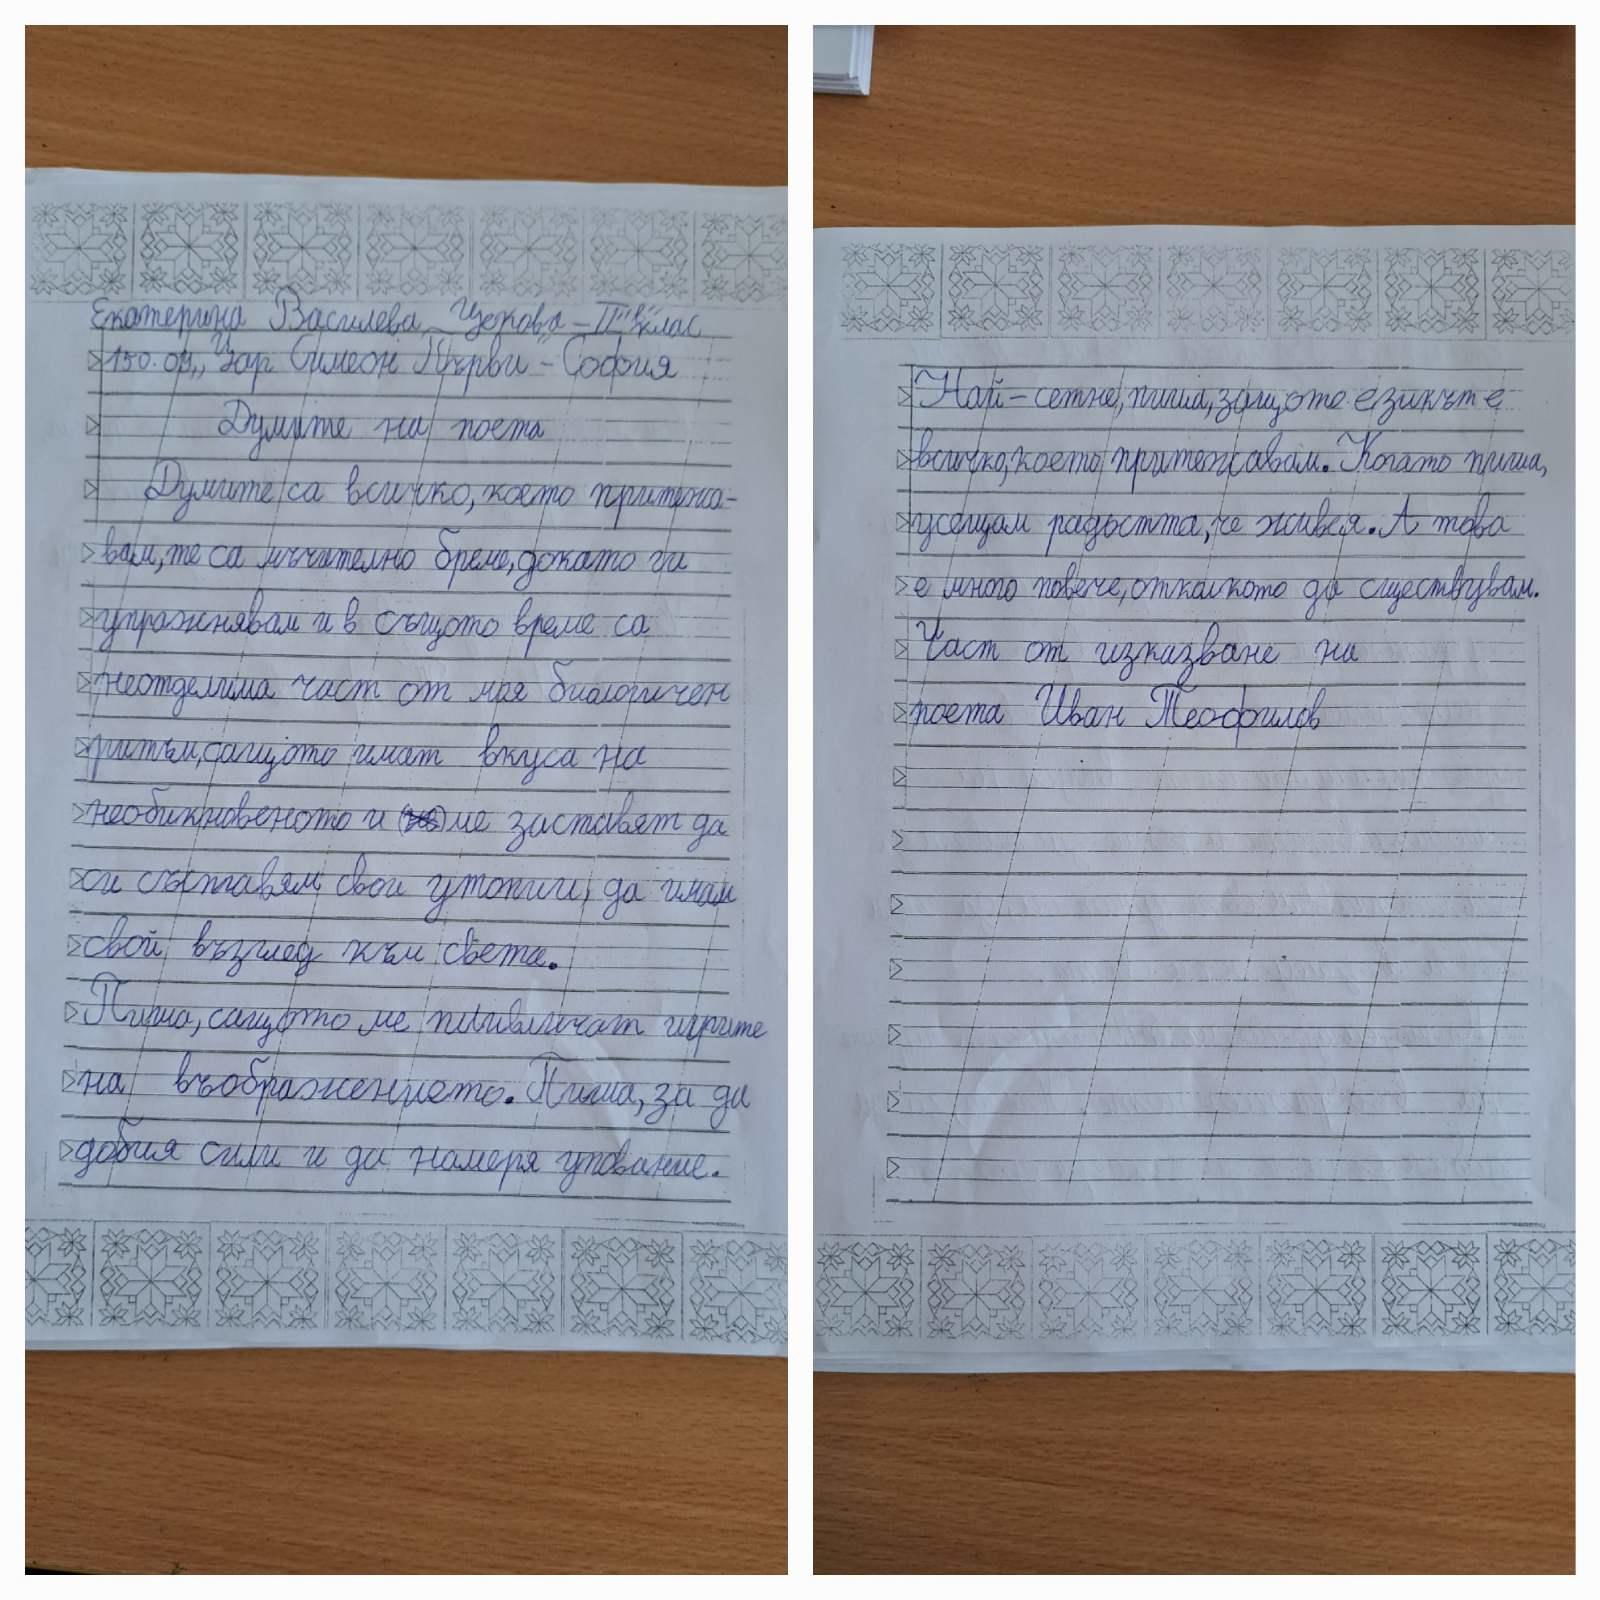 Екатерина Василева Цекова – II "в" клас
150. ОУ „Цар Симеон Първи" – София
Думите на поета
Думите са всичко, което притежа-
вам, те са мъчително бреме, докато ги
упражнявам и в същото време са
неотделима част от моя биологичен
ритъм, сащото имат вкуса на
необикновеното и ме заставят да
си съставям свои утопии, да имам
свой възглед към света.
Пиша, сащото ме привличат игрите
на въображението. Пиша, за да
добия сили и да намеря упование.
Най-сетне, пиша, защото езикът е
всичко, което притежавам. Когато пиша,
усещам радостта, че живея. А това
е много повече, отколкото да съществувам.
Част от изказване на
поета Иван Теофилов